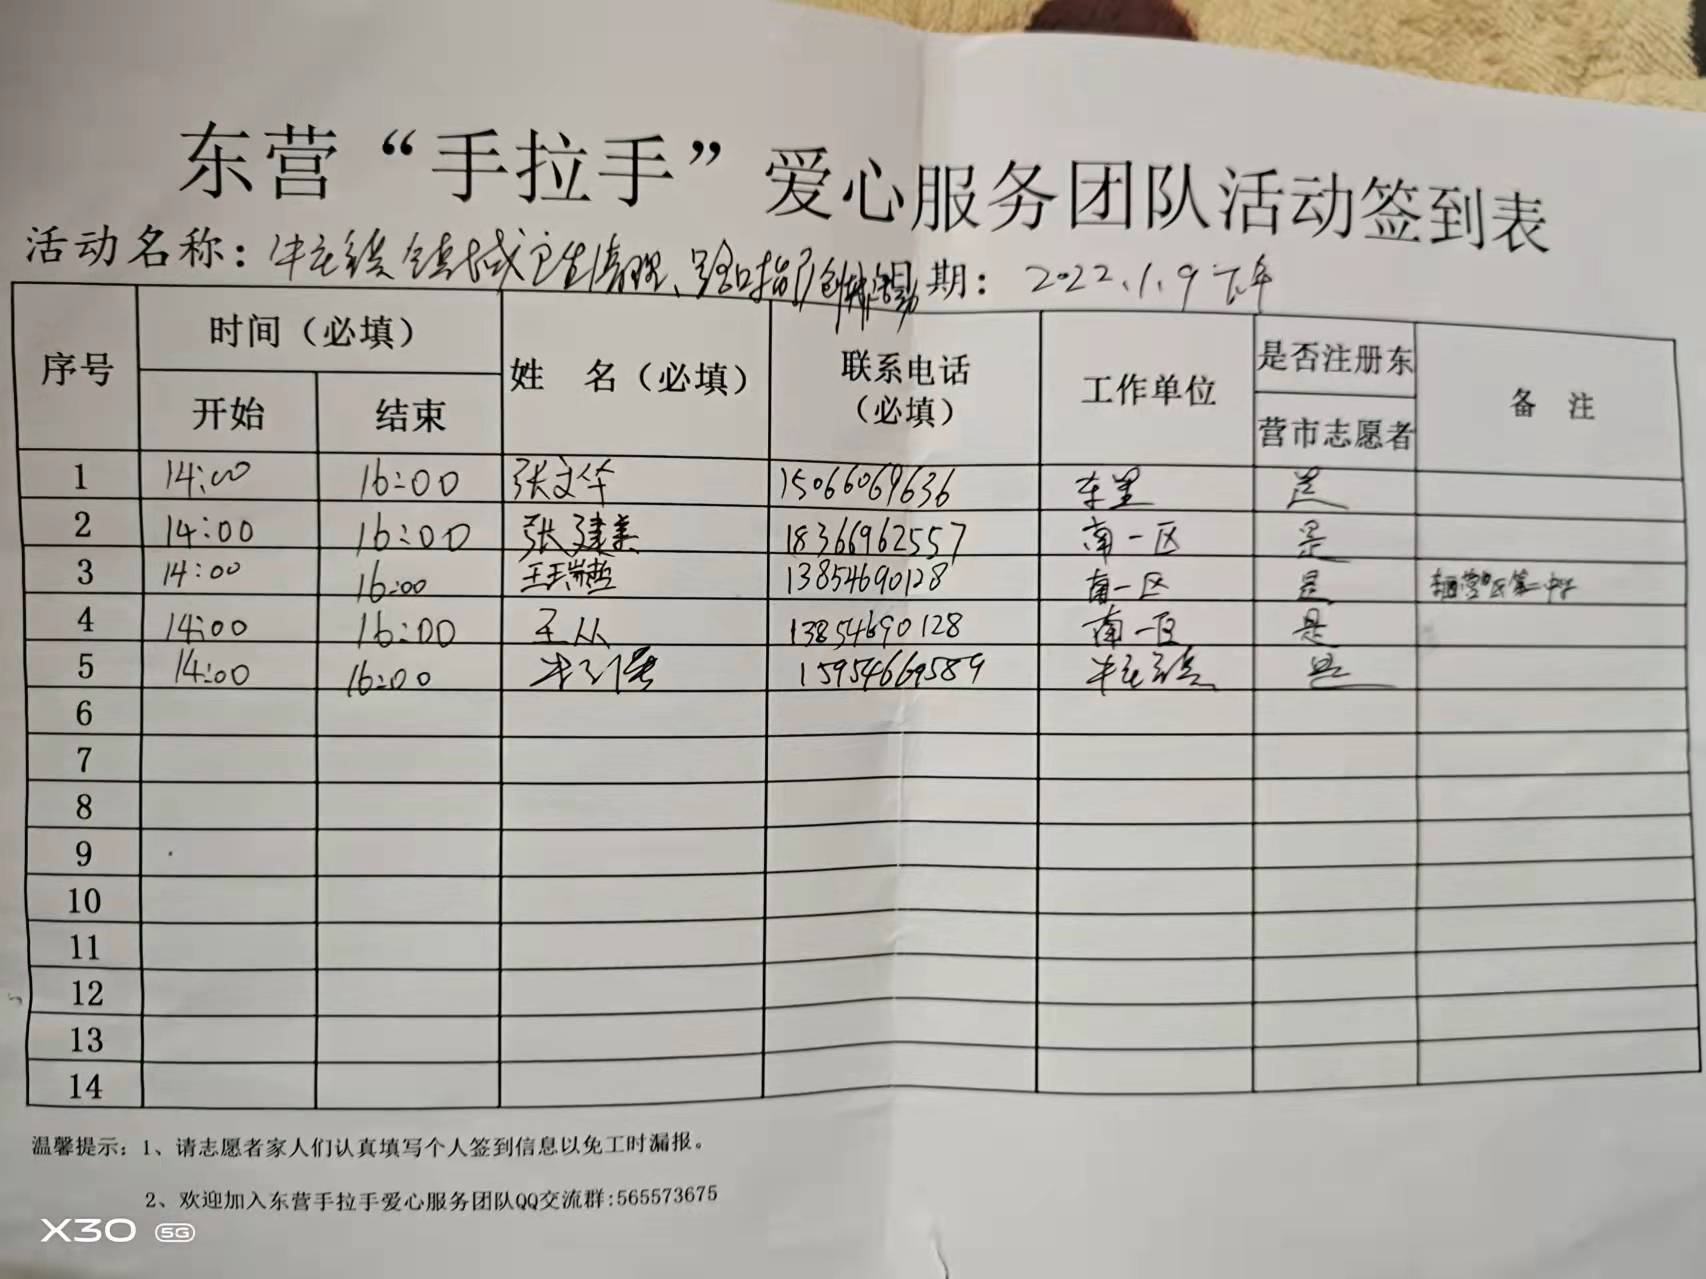 东营“手拉手”爱心服务团队活动签到表
活动名称：牛庄镇镇域卫生清理、路口指引 活动 日期：2022.1.9下午
序号 时间（必填） 姓 名（必填） 联系电话（必填） 工作单位 是否注册东营市志愿者 备 注
开始 结束
1 14:00 16:00 张文华 15066069636 车里 是
2 14:00 16:00 张建美 18366962557 南一区 是
3 14:00 16:00 王瑞 13854690128 南一区 是
4 14:00 16:00 王从 13854690128 南一区 是
5 14:00 16:00 15954669589 牛庄镇 是
6
7
8
9
10
11
12
13
14
温馨提示：1、请志愿者家人们认真填写个人签到信息以免工时漏报。
2、欢迎加入东营手拉手爱心服务团队QQ交流群:565573675
X30 5G